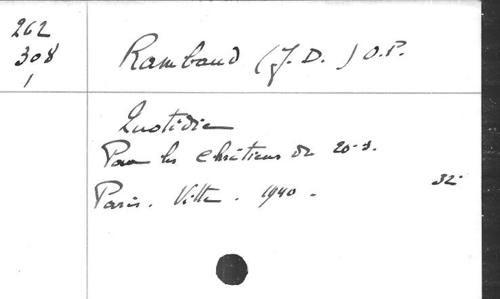 262
308
1
Rambaud (J. D.) O.P.
Quotidien
Pour les chrétiens du 20e s.
Paris. Vitte. 1940.
32